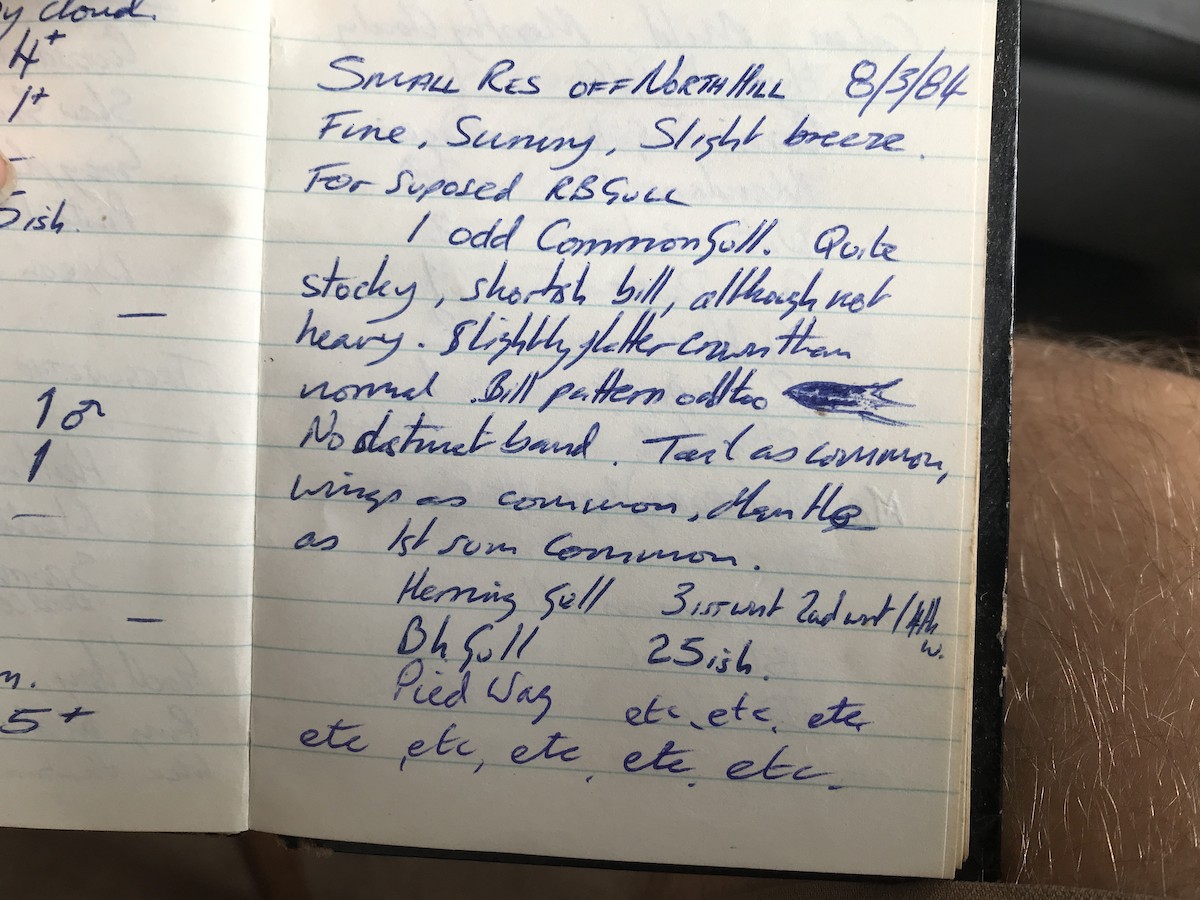 y cloud.
4+
1+
–
5ish.
—
1♂
1
—
—
m.
5+
SMALL RES OFF NORTH HILL 8/3/84
Fine, Sunny, Slight breeze.
For Suposed RBGULL
1 odd Common Gull. Quite
stocky, shortish bill, although not
heavy. Slightly flatter crown than
normal. Bill pattern odd too
No distinct band. Tail as common,
wings as common, Mantle
as 1st sum Common.
Herring Gull 3 1st wnt 2nd wnt / 4th w.
Bh Gull 25ish.
Pied Wag etc, etc, etc
etc, etc, etc, etc, etc.